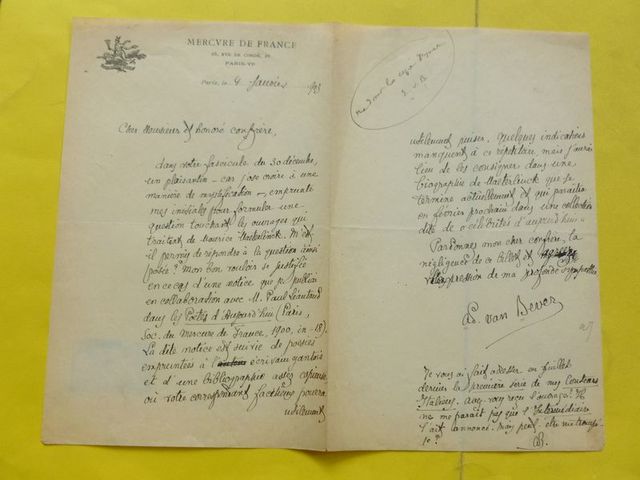 MERCVRE DE FRANCE
26, RVE DE CONDÉ, 26
PARIS-VIe
Paris, le 4 Janvier
Cher Monsieur et honoré confrère,
dans votre fascicule du 30 décembre,
un plaisantin – car j'ose croire à une
manière de mystification – emprunte
mes initiales pour formuler une
question touchant les ouvrages qui
traitent de Maurice Maeterlinck. M'est-
il permis de répondre à la question ainsi
posée? Mon bon vouloir se justifie
en ce cas d'une notice que je publiai
en collaboration avec M. Paul Léautaud
dans les Poètes d'Aujourd'hui (Paris,
Soc. du Mercure de France, 1900, in-18).
La dite notice est suivie de poésies
empruntées à l' écrivain gantois
et d'une bibliographie assez copieuse
où votre correspondant facétieux pourra
utilement
utilement puiser. Quelques indications
manquent à ce répertoire mais j'aurai
lieu de les consigner dans une
biographie de Maeterlinck que je
termine actuellement et qui paraîtra
en février prochain dans une collection
dite de célébrités d'aujourd'hui.
Pardonnez mon cher confrère, la
négligence de ce billet et
l'expression de ma profonde sympathie
Ad. van Bever
Je vous ai fait adresser en juillet
dernier la première série de mes Conteurs
Italiens. Avez-vous reçu l'ouvrage? Il
ne me paraît pas que l'Intermédiaire
l'ait annoncé. Mais peut-être me trompé-
je?